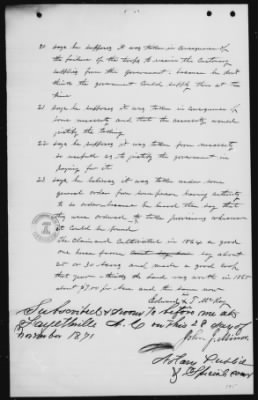 20. says he supposes it was taken in consequence of
the failure of the troops to receive the customary
supplies from the government, because he don't
think the government could supply them at the
time
21. says he supposes it was taken in consequence of
some necessity and that the necessity would
justify the taking
22. says he supposes it was taken from necessity
so useful as to justify the government in
paying for it.
23. says he believes it was taken under some
general order from some person having authority
to so order because he heard them say that
they were ordered to take provisions wherever
it could be found
The Claimant Cultivated in 1864 a good
one horse farm say about
25 or 30 acres and made a good crop
that year - thinks the land was worth in 1865
about $7.00 per acre and the same now
Edward T. McKoy
Subscribed & sworn to before me at
Fayetteville N.C on this 28 day of
November 1871
John J. Minor
Notary Public
& Official